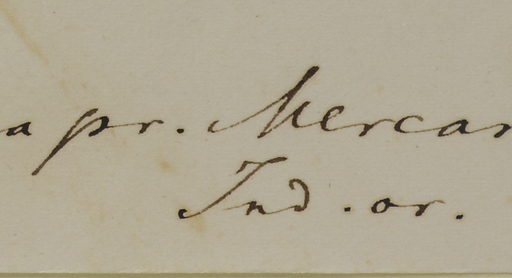 a pr. Mercar
Ind. or.